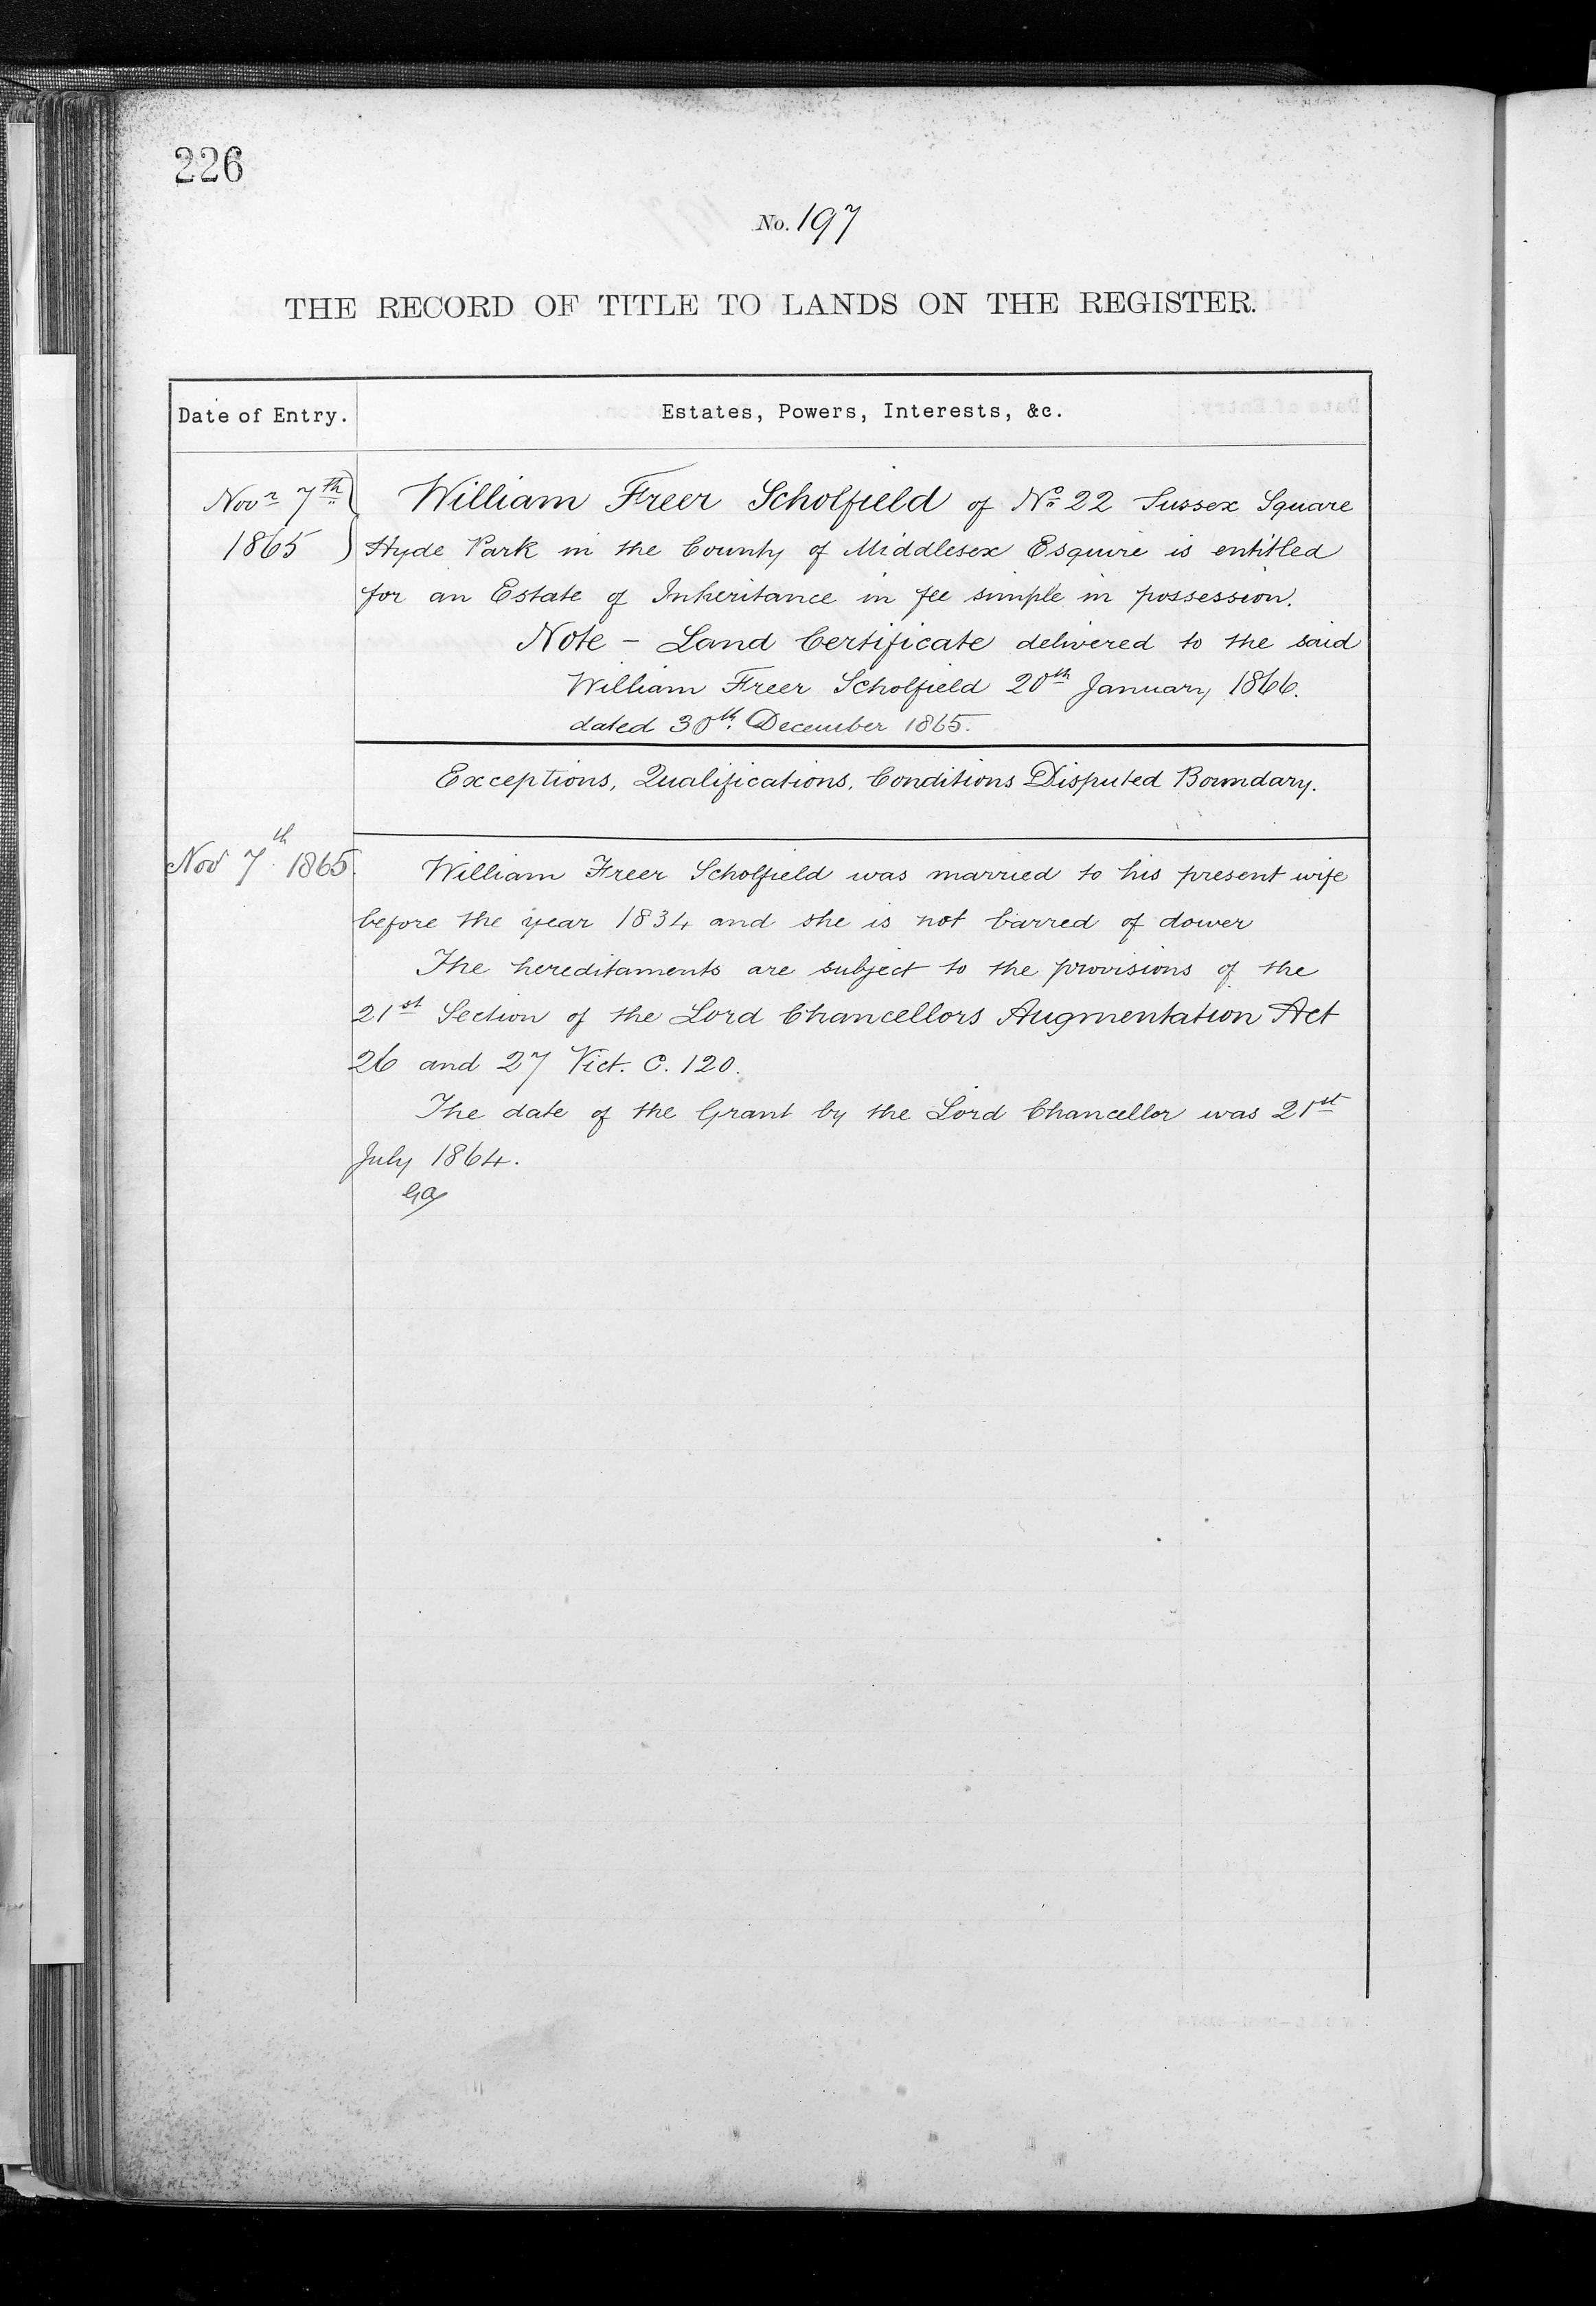 226
No. 197
THE RECORD OF TITLE TO LANDS ON THE REGISTER.
Date of Entry.
Estates, Powers, Interests, &c.
Novr 7th
1865
William Freer Scholfield of No 22 Sussex Square
Hyde Park in the County of Middlesex Esquire is entitled
for an Estate of Inheritance in fee simple in possession.
Note - Land Certificate delivered to the said
William Freer Scholfield 20th January 1866.
dated 30th December 1865.
Exceptions, Qualifications, Conditions Disputed Boundary.
Nov 7th 1865.
William Freer Scholfield was married to his present wife
before the year 1834 and she is not barred of dower
The hereditaments are subject to the provisions of the
21st Section of the Lord Chancellors Augmentation Act
26 and 27 Vict. C. 120.
The date of the Grant by the Lord Chancellor was 21st
July 1864.